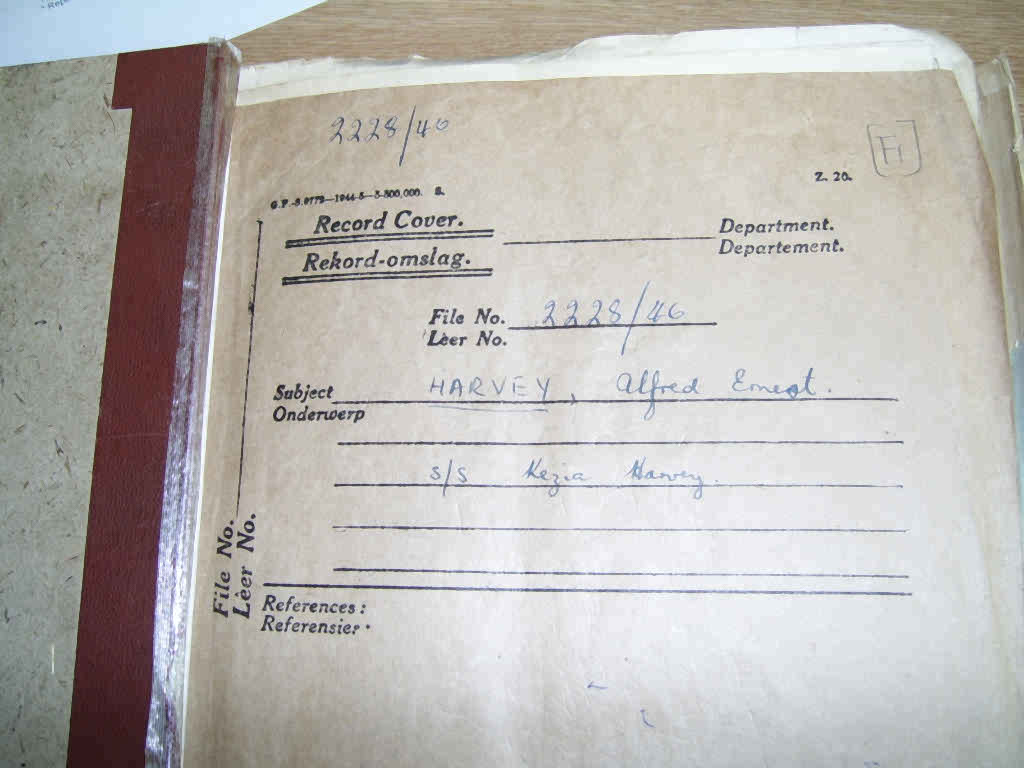 2228/46
F1
Z. 20.
G.P.-S.9773—1944-5—3-300,000. S.
Record Cover.
Rekord-omslag.
Department.
Departement.
File No. 2228/46
Lêer No.
Subject HARVEY, Alfred Ernest.
Onderwerp
s/s Kezia Harvey.
File No.
Lêer No.
References:
Referensies: